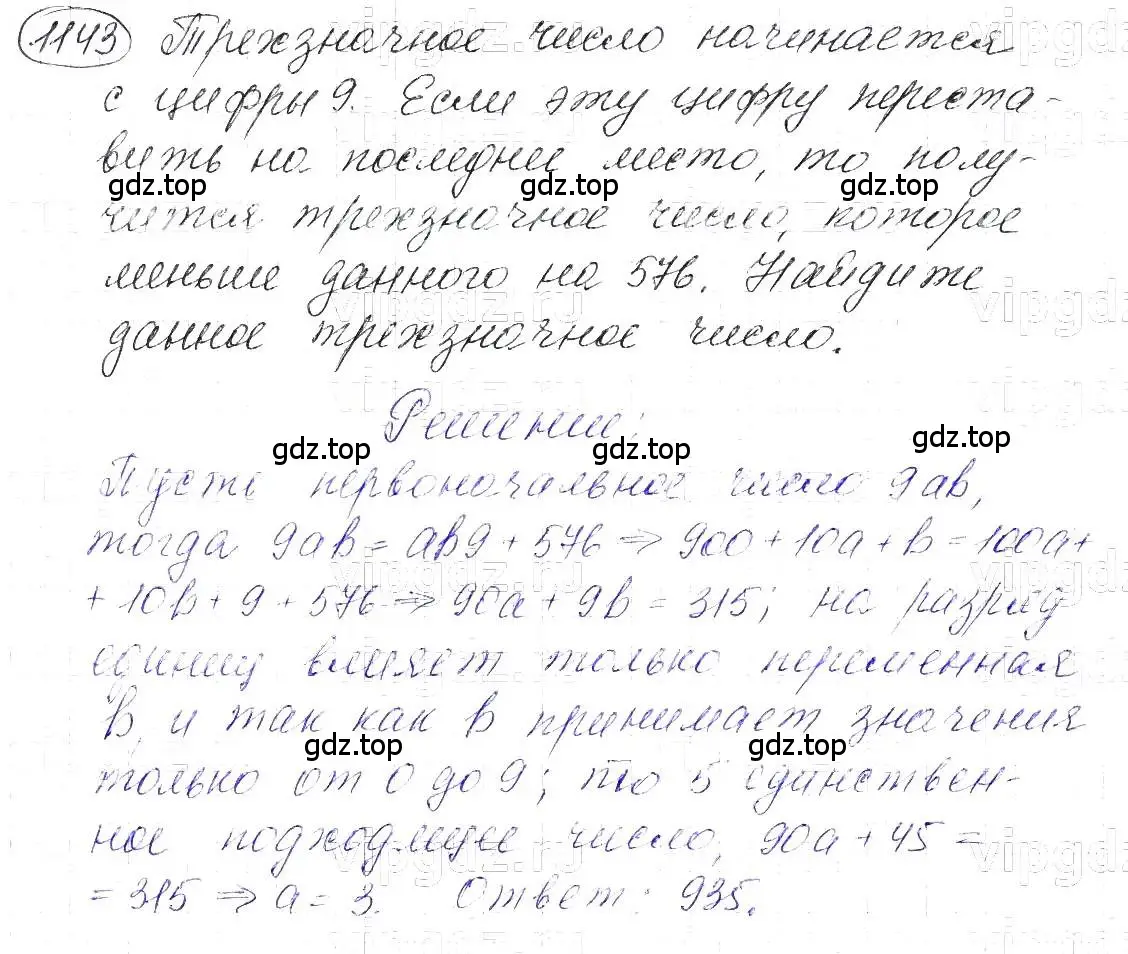 1143 Трехзначное число начинается
с цифры 9. Если эту цифру переста-
вить на последнее место, то полу-
чится трехзначное число, которое
меньше данного на 576. Найдите
данное трехзначное число.
Решение:
Пусть первоначальное число 9ab,
тогда 9ab = ab9 + 576 => 900 + 10a + b = 100a +
+ 10b + 9 + 576 => 90a + 9b = 315; на разряд
единиц влияет только переменная
b, и так как b принимает значения
только от 0 до 9; то 5 единствен-
ное подходящее число, 90a + 45 =
= 315 => a = 3. Ответ: 935.
gdz.top
gdz.top
gdz.top
gdz.top
gdz.top
gdz.top
gdz.top
gdz.top